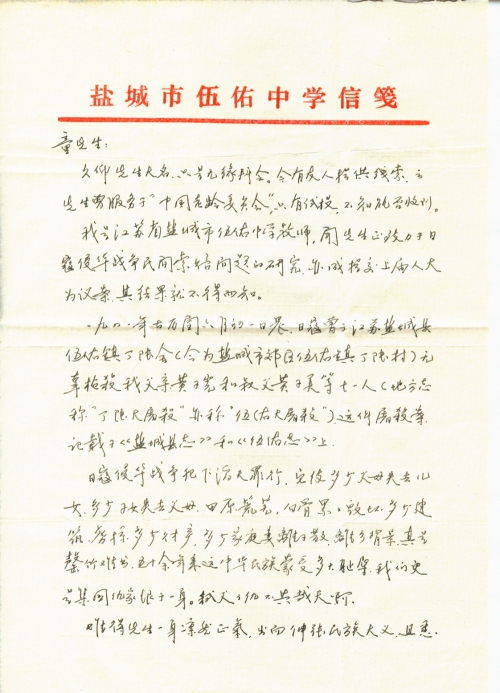 盐城市伍佑中学信笺
童先生：
久仰先生大名，只是无缘拜会。今有友人提供线索，言
先生服务于“中国老龄委员会”，只有试投，不知能否收到。
我是江苏省盐城市伍佑中学教师，闻先生正致力于日
寇侵华战争民间索赔问题的研究，亦或提交上届人大
为议案，其结果就不得而知。
一九四一年古历闰六月初一日晨，日寇曾于江苏盐城县
伍佑镇丁陈舍（今为盐城市郊区伍佑镇丁陈村）无
辜枪杀我父亲黄子宽和叔父黄子真等七十一人（地方志
称“丁陈大屠杀”亦称“伍佑大屠杀”）。这件屠杀事
记载于《盐城县志》和《伍佑志》上。
日寇侵华战争犯下滔天罪行，它使多少父母失去儿
女，多少子女失去父母，田原荒芜，白骨累累，毁坏多少建
筑，劫掠多少财产，多少家庭妻离子散，离乡背景，真是
罄竹难书，五十余年来这中华民族蒙受多大耻辱，我们更
是集国仇家恨于一身。弑父之仇不共戴天啊。
唯得先生一身凛然正气，出而伸张民族大义，且悉